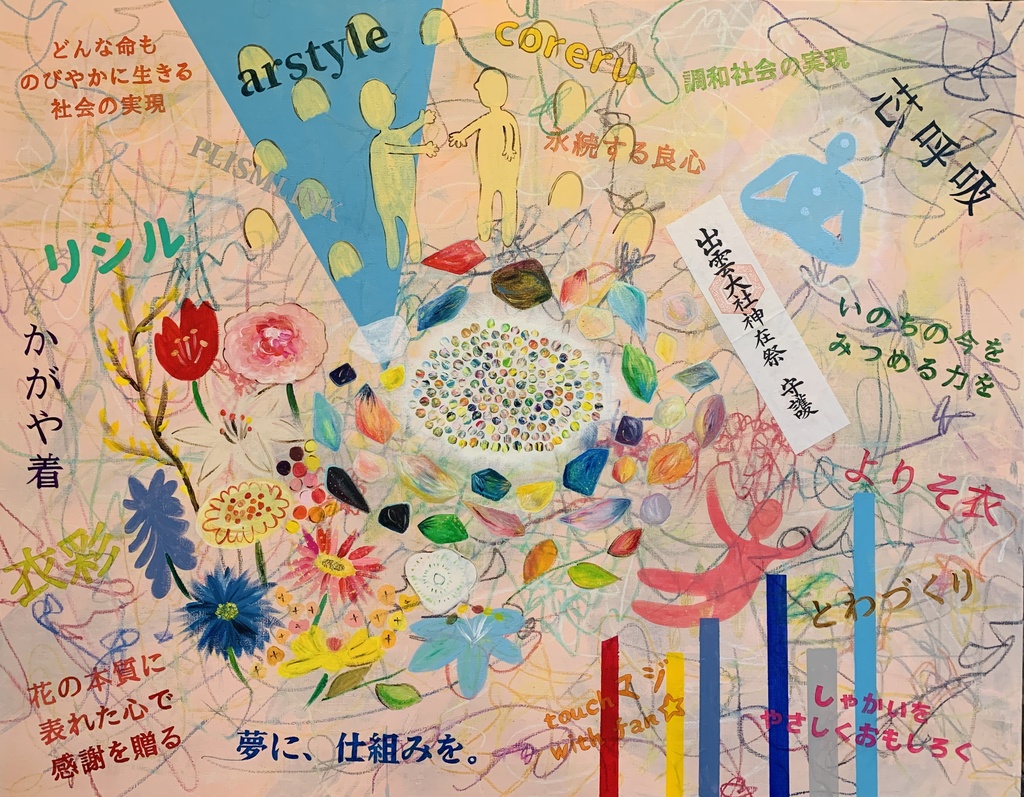 どんな命も
のびやかに生きる
社会の実現
arstyle
coreru
調和社会の実現
芯呼吸
永続する良心
PLISMU
リシル
出雲大社神在祭 守護
いのちの今を
みつめる力を
かがや着
よりそ衣
衣彩
とわづくり
花の本質に
表れた心で
感謝を贈る
夢に、仕組みを。
touchマジ
with fan☆
しゃかいを
やさしくおもしろく